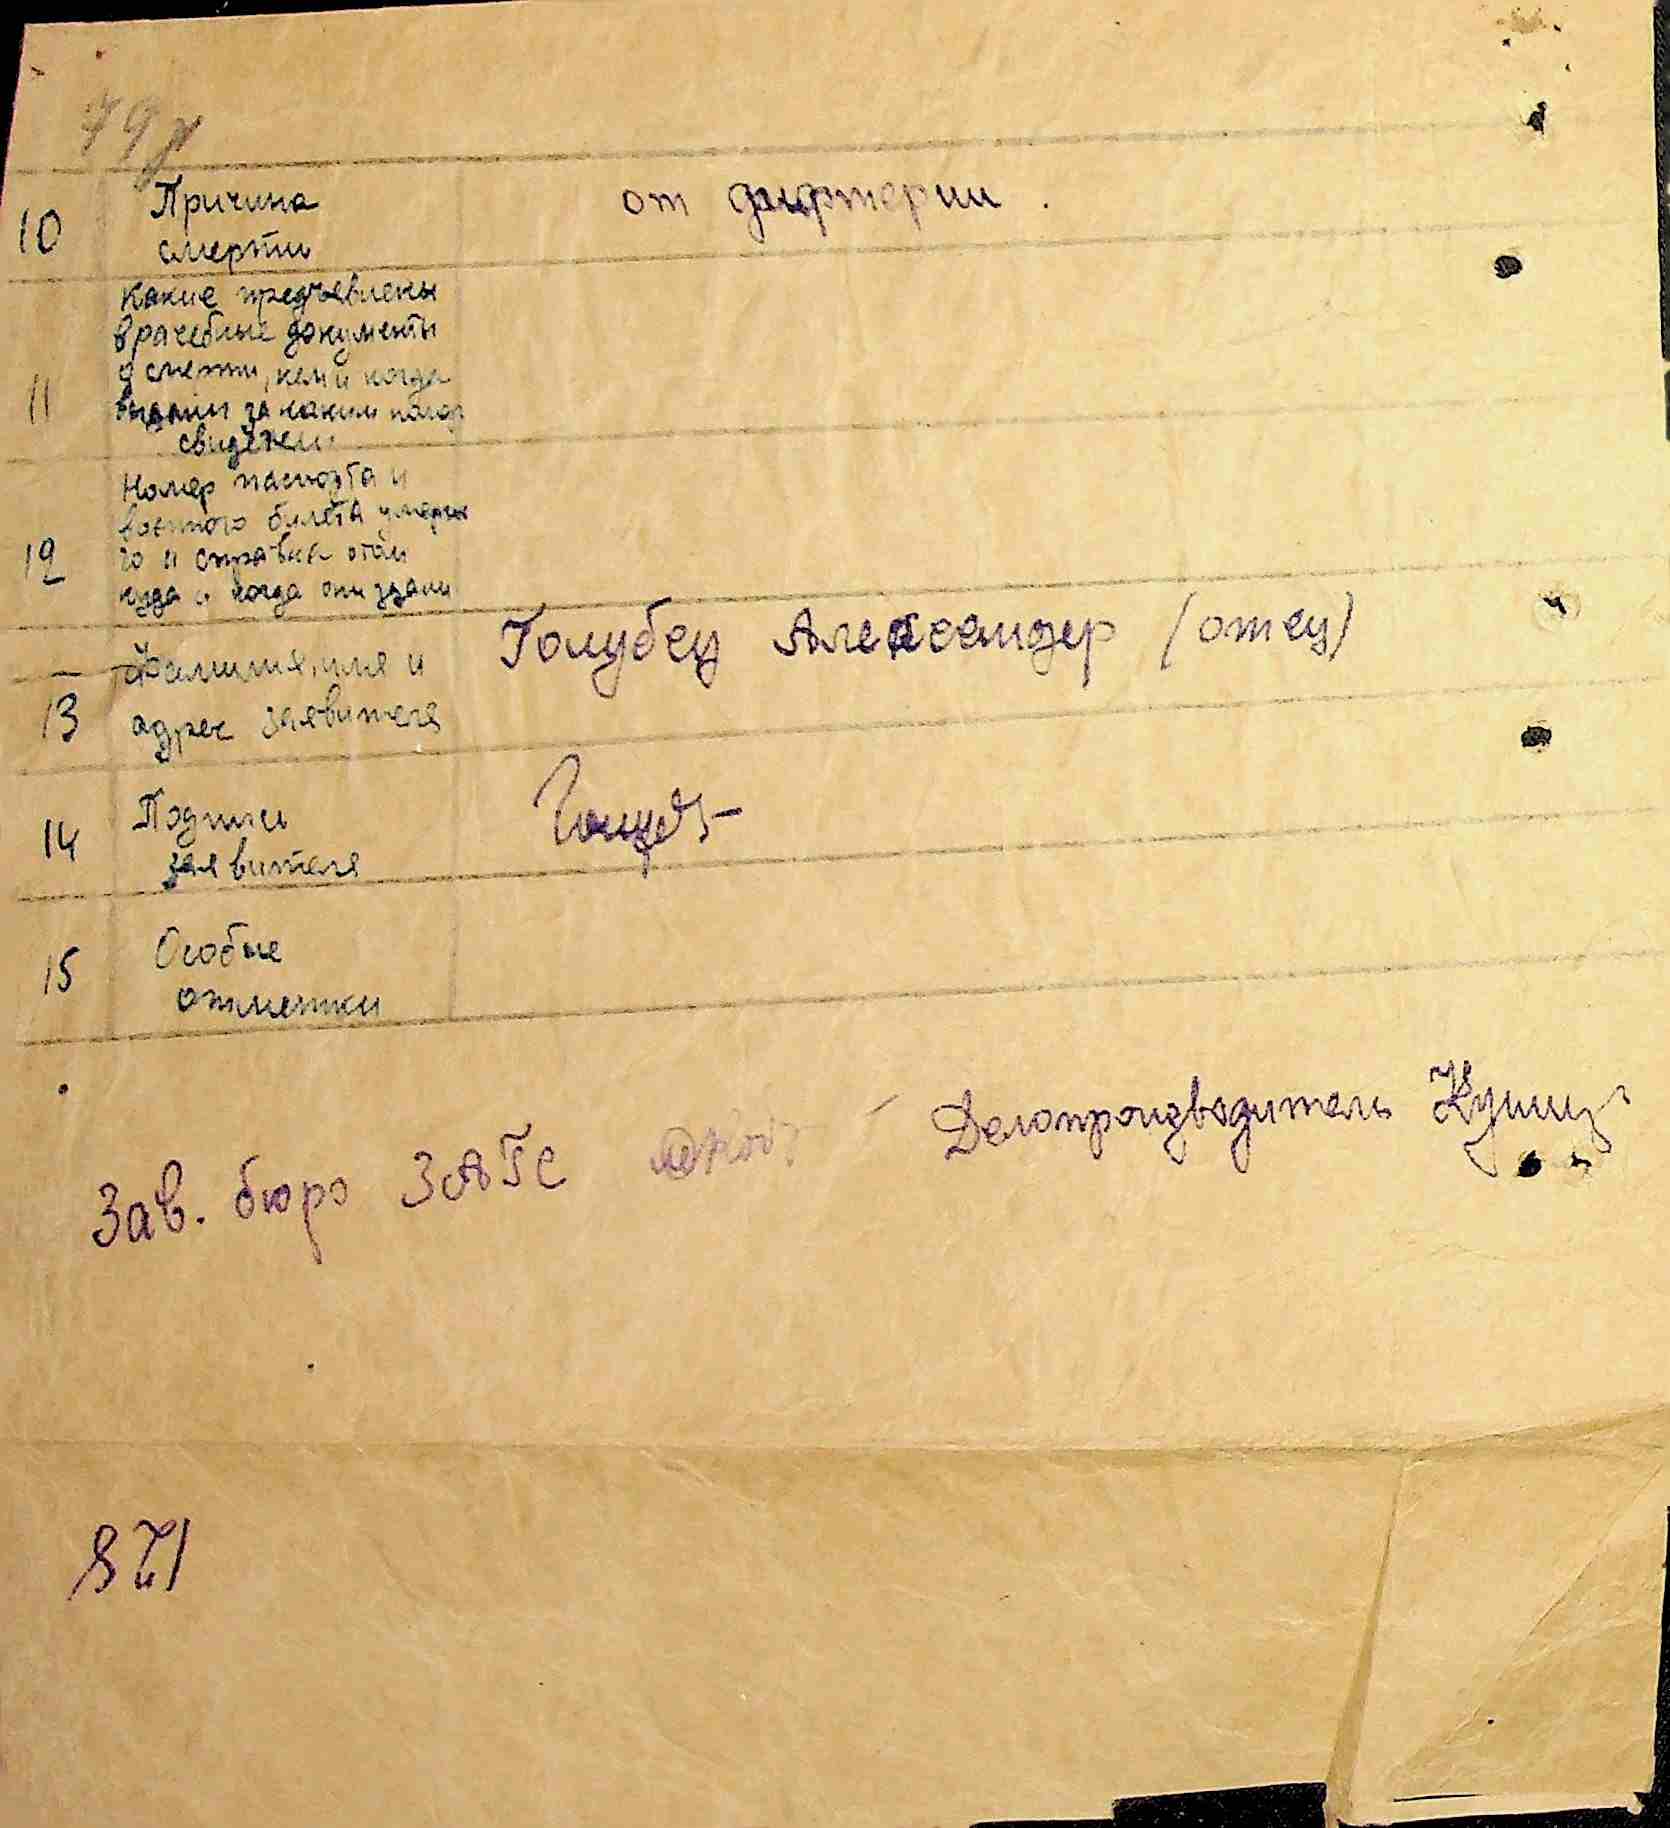 10 Причина от дифтерии.
смерти
Какие предъевлены
врачебные документы
11 о смерти, кем и когда
выданы за каким номер
свидетел
Номер паспорта и
военного билета умерш
12 го и справка о том
куда и когда они здали
Фамилия, имя и Голубец Александер (отец)
13 адрес заявителя
14 Подпись
заявителя
15 Особые
отметки
Делопроизводитель
Зав. бюро ЗАГС
871